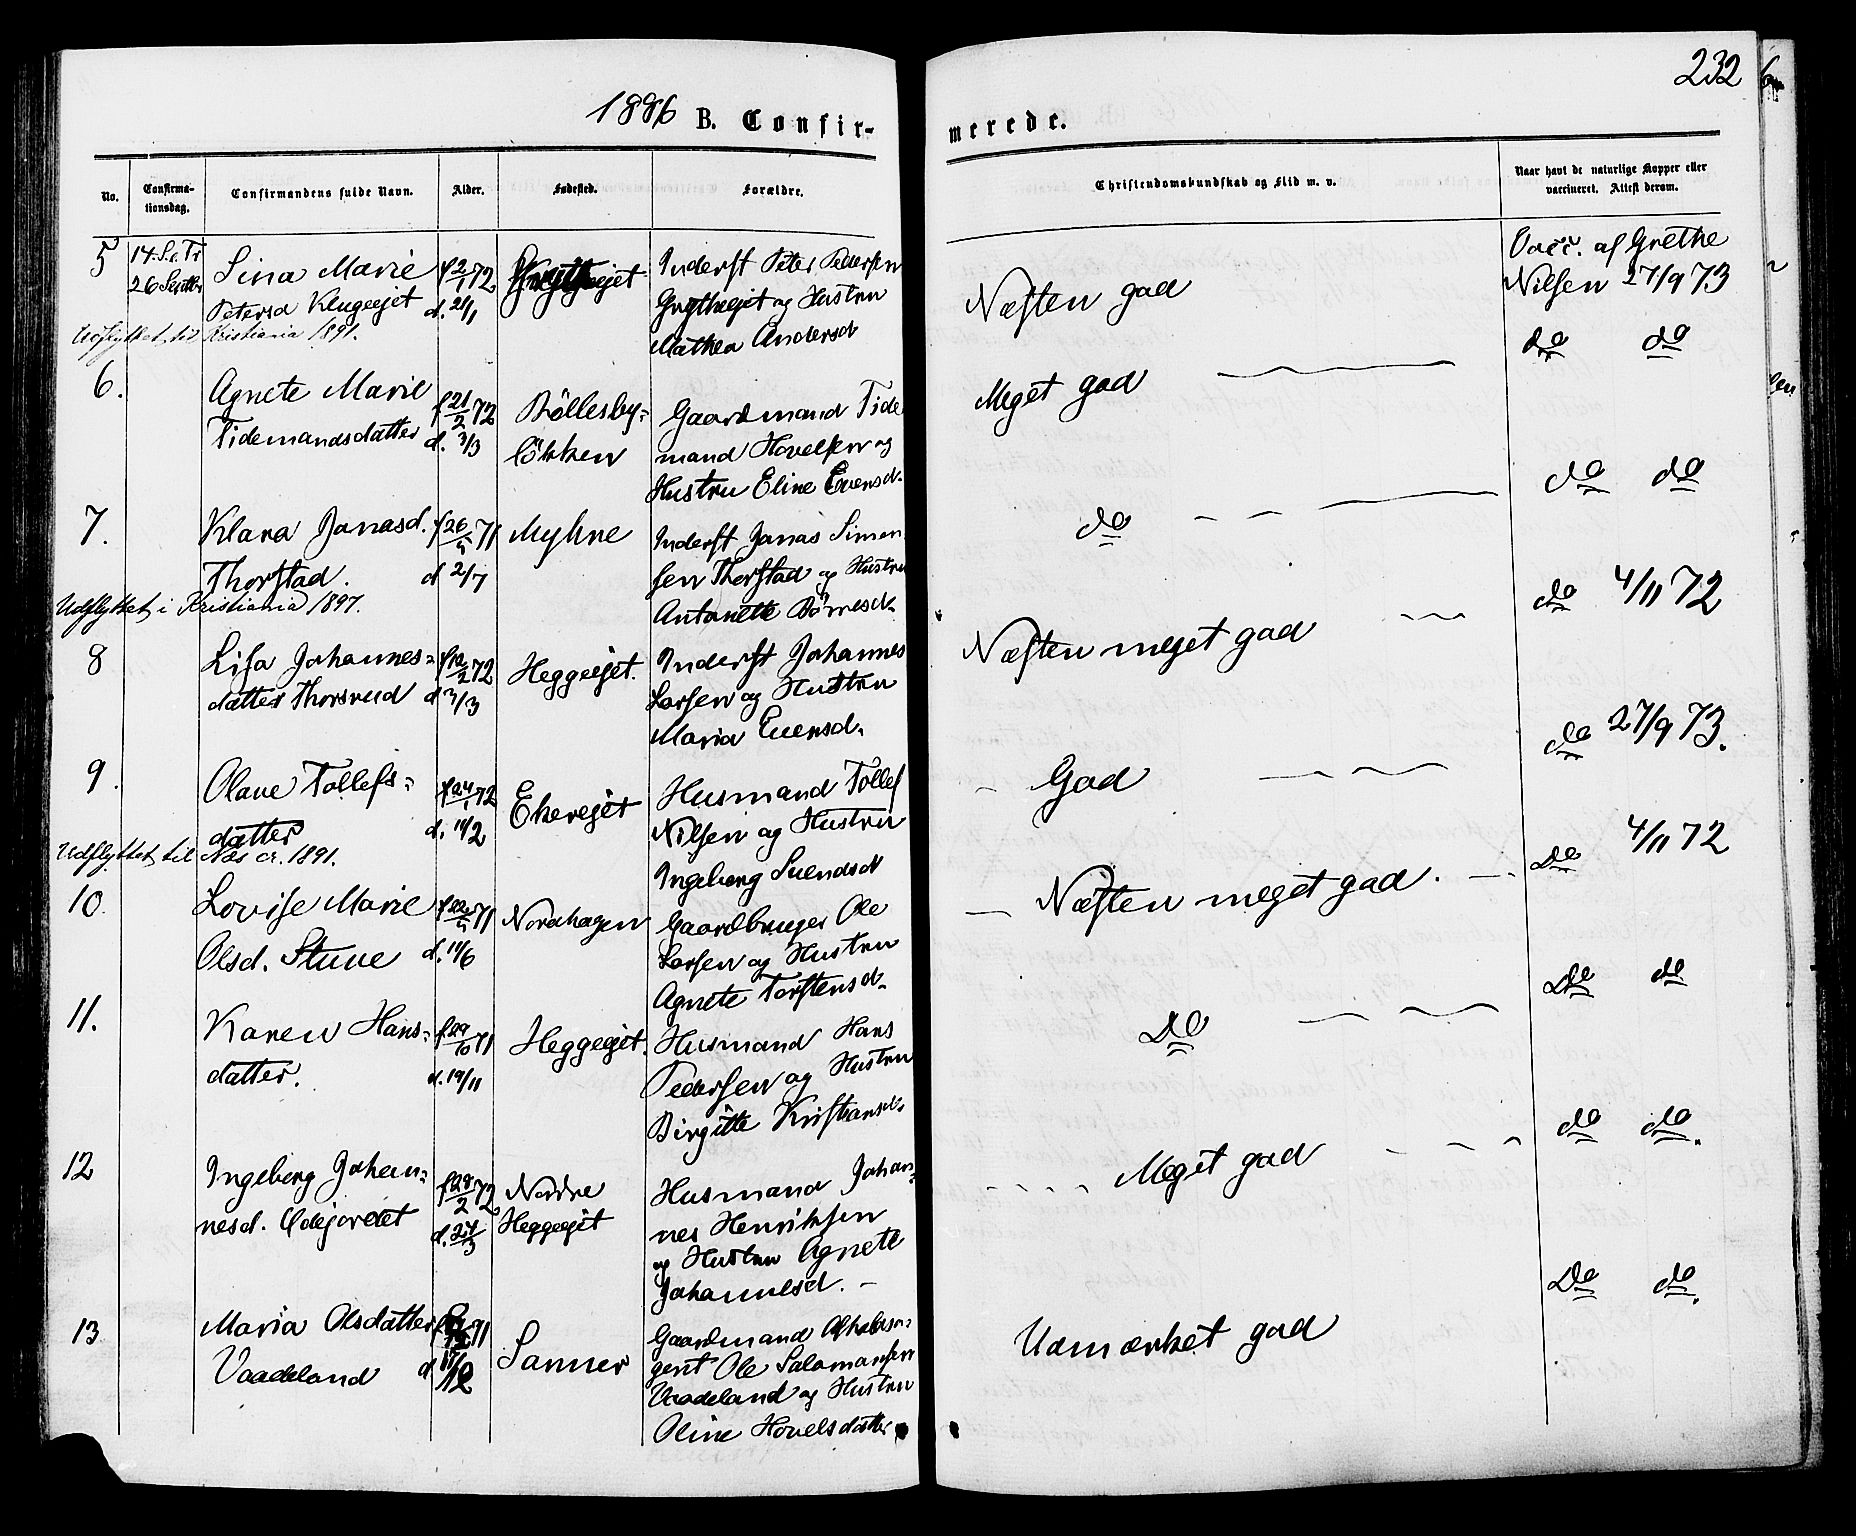 232
1886 B. Confir-
merede.
No.
Confirma-
tionsdag.
Confirmandens fulde Navn.
Alder.
Fødested.
Forældre.
Christendomskundskab og Flid m. v.
Naar havt de naturlige Kopper eller
vaccineret. Attest derom.
5
26 Septbr
Lina Marie
Petersd
f 2/1 72
d. 21/1
Inderst Peter Pedersen
Grytheejet og Hustru
Mathea Andersd
Næsten god
Vacc. af Grethe
Nilsen 27/9 73
Udflyttet til Kristiania 1891.
6.
Agnete Marie
Tidemandsdatter
f 21/2 72
d. 3/3
Böllesby-
lökken
Gaardmand Tide
mand Hovelsen og
Hustru Eline Evensd.
Meget god
do do
7.
Klara Jonasd.
Thorstad.
f 26/5 71
d 2/7
Myhre
Inderst Jonas Simon
sen Thorstad og Hustru
Antonette
do
do do
Udflyttet i Kristiania 1897.
8
Lisa Johannes-
datter Thorsrud
72
d 3/3
Heggeejet.
Inderst Johannes
Larsen og Hustru
Maria Evensd.
Næsten meget god
do 4/11 72
9.
Olave Tollefs-
datter
f 24/1 72
d. 11/2
Ekereejet
Husmand Tollef
Nilsen og Hustru
Ingeborg Svendsd
God
do 27/9 73.
Udflyttet til Næs cr. 1891.
10.
Lovise Marie
Olsd. Stuve
f 22/5 71
d. 11/6
Nordhagen
Gaardbruger Ole
Larsen og Hustru
Agnete Torstensd.
Næsten meget god.
Do 4/11 72
11.
Karen Hans-
datter.
f 29/10 71
d. 19/11
Heggeejet.
Husmand Hans
Pedersen og Hustru
Birgitte Kristiansd.
Do
Do do
12
Ingeborg Johan-
nesd.
f 28/2 72
d. 24/3
Nordre
Heggeejet
Husmand Johan-
nes Henriksen
og Hustru Agnete
Johannesd.
Meget god
do do.
13
Maria Olsdatter
Vaadeland
71
d 17/12
Sanner
Gaardmand
gent Ole Salamonsen
Vaadeland og Hustru
Oline Hovelsdatter
Udmærket god
Do do.